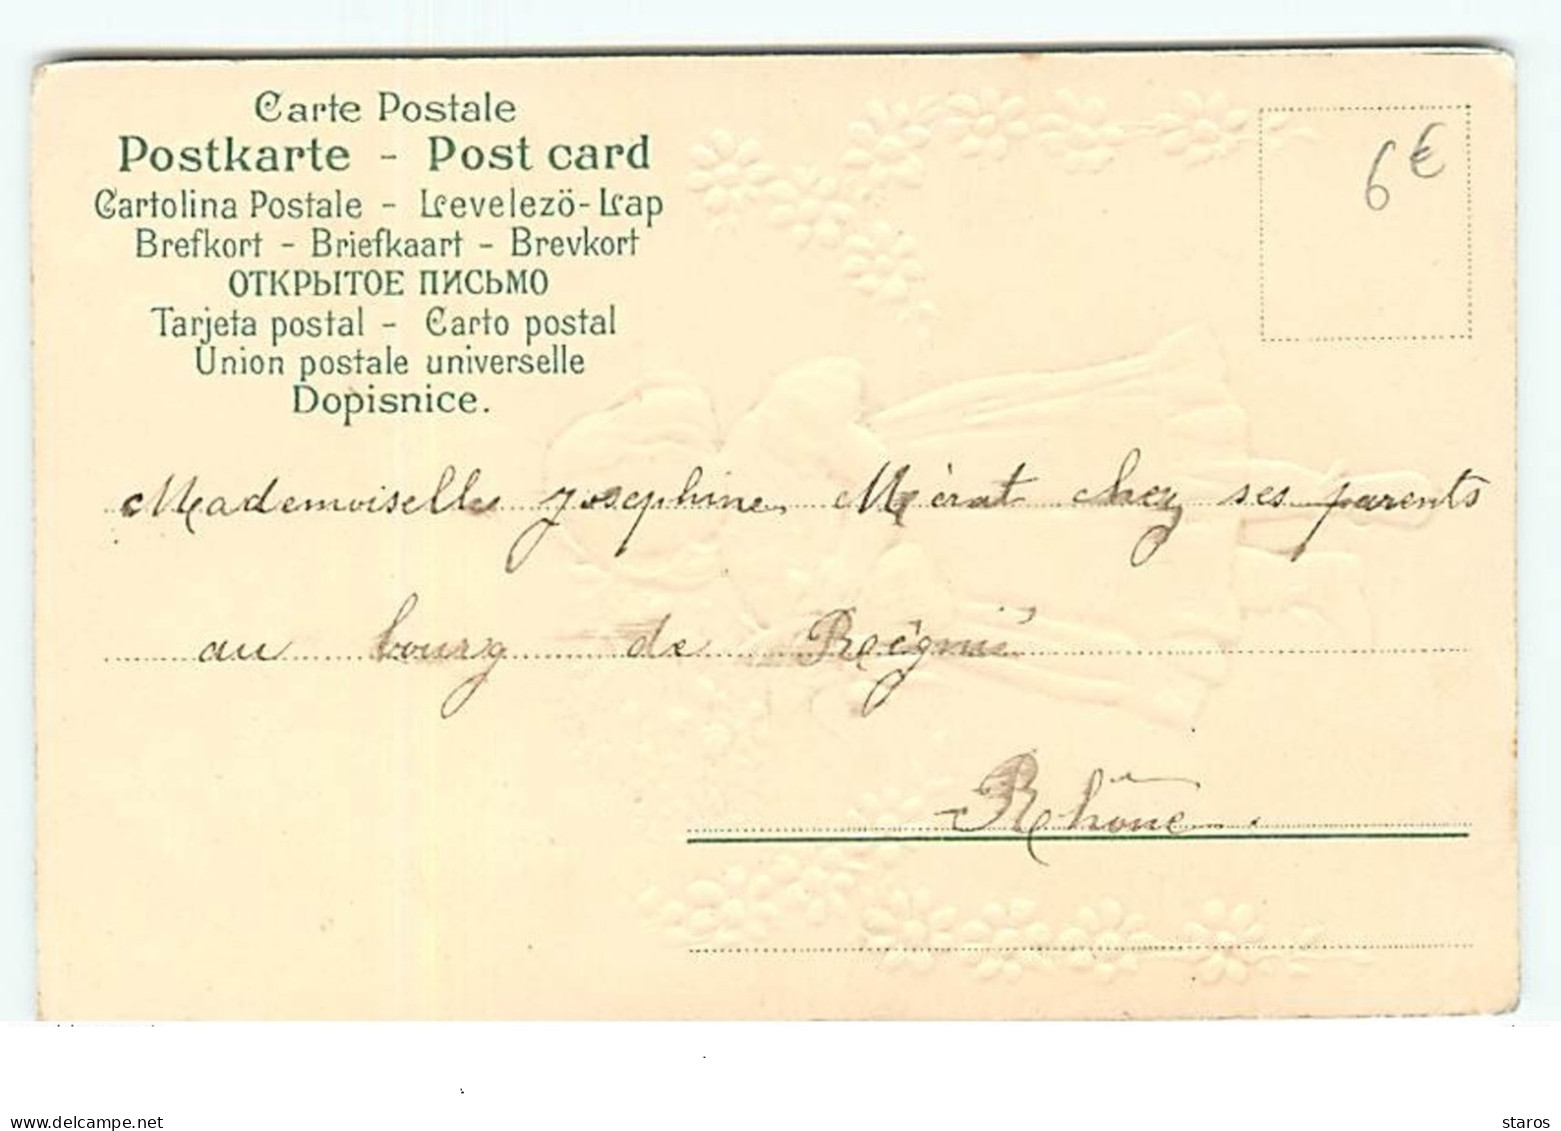 Carte Postale
Postkarte - Post card
Cartolina Postale - Levelező-Lap
Brefkort - Briefkaart - Brevkort
ОТКРЫТОЕ ПИСЬМО
Tarjeta postal - Carto postal
Union postale universelle
Dopisnice.
6€
Mademoiselle Josephine Mérat chez ses parents
au bourg de Régnié
Rhône
www.delcampe.net
staros